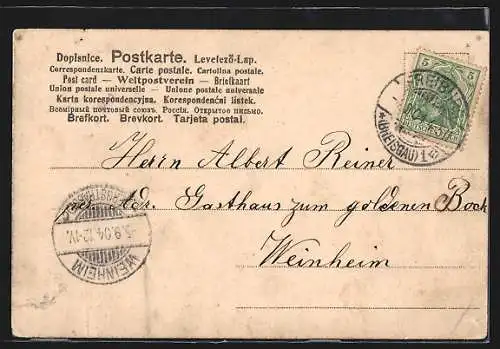 Dopisnice. Postkarte. Levelező-Lap.
Correspondenzkarte. Carte postale. Cartolina postale.
Post card — Weltpostverein — Briefkaart
Union postale universelle — Unione postale universale
Karta korespondencyjna. Korespondenční lístek.
Всемірный почтовый союзъ. Россія. Открытое письмо.
Brefkort. Brevkort. Tarjeta postal.
5 5
(BREISGAU) 1
Herrn Albert Reiner
Adr. Gasthaus zum goldenen Bock
Weinheim
5.9.04.12-1V.
WEINHEIM